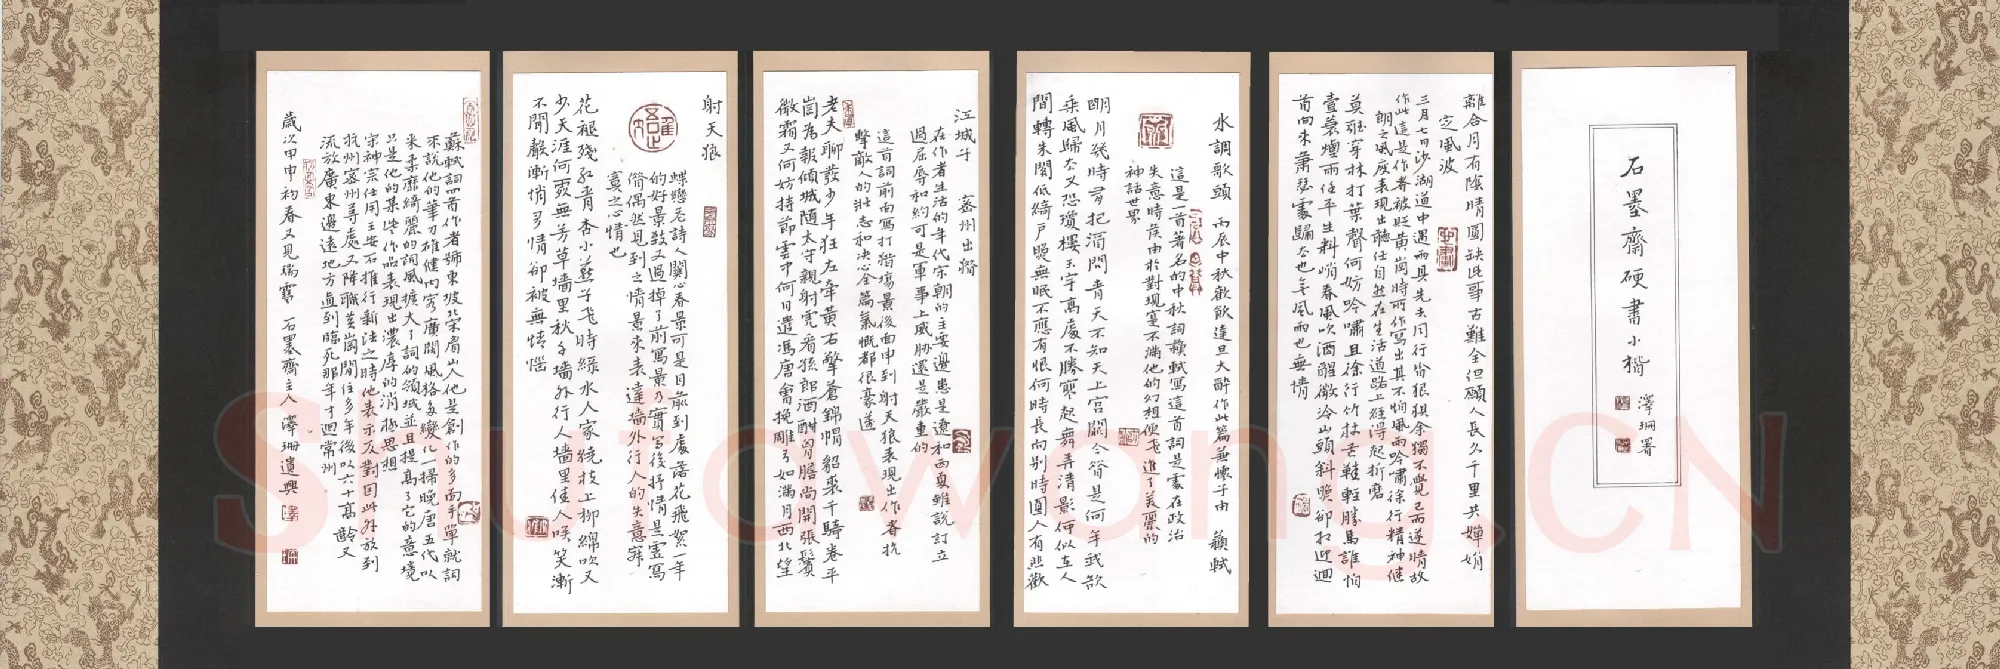 石墨齋硬書小楷
澤珊署
離合月有陰晴圓缺此事古難全但願人長久千里共嬋娟
定風波
三月七日沙湖道中遇雨具先去同行皆狼狽余獨不覺已而遂晴故
作此這是作者被貶黃崗時所作寫出其不怕風雨吟嘯徐行精神健
朗之風度表現出聽任自然在生活道路上經得起折磨
莫聽穿林打葉聲何妨吟嘯且徐行竹杖芒鞋輕勝馬誰怕
壹蓑煙雨任平生料峭春風吹酒醒微冷山頭斜晚卻相迎迴
首向來蕭瑟處歸去也無風雨也無情
水調歌頭 丙辰中秋歡飲達旦大醉作此篇兼懷子由 蘇軾
這是一首著名的中秋詞蘇軾寫這首詞是處在政治
失意時候由於對現實不滿他的幻想便飛進了美麗的
神話世界
明月幾時有把酒問青天不知天上宮闕今昔是何年我欲
乘風歸去又恐瓊樓玉宇高處不勝寒起舞弄清影何似在人
間轉朱閣低綺戶曉無眠不應有恨何時長向別時圓人有悲歡
江城子 密州出獵
在作者生活的年代宋朝的主要邊患是遼和西夏雖說訂立
過屈辱和約可是軍事上威胁還是嚴重的
這首詞前面寫打獵場景後面申到射天狼表現出作者抗
擊敵人的壯志和决心全篇氣慨都很豪邁
老夫聊發少年狂左牽黃右擎蒼錦帽貂裘千騎卷平
崗為報傾城隨太守親射虎看孫郎酒酣胷膽尚開張鬢
微霜又何妨持節雲中何日遣馮唐會挽雕弓如滿月西北望
射天狼
蝶戀花詩人關心春景可是目前到處落花飛絮一年
的好景致又過掉了前寫景乃實写後抒情是虛寫
簡偶然見到之情景來表達墙外行人的失意寂
寞之心情也
花褪殘紅青杏小燕子飞時綠水人家繞枝上柳綿吹又
少天涯何處無芳草墻里秋千墻外行人墻里佳人咲笑漸
不聞聲漸悄多情卻被無情惱
蘇軾詞四首作者號東坡北宋眉山人他是創作的多面手單就詞
來說他的筆力雄健内容廣闊風格多變化一掃晚唐五代以
来柔靡綺麗的詞風擴大了詞的領域並且提高了它的意境
只是他的某些作品表現出濃厚的消極思想
宋神宗任用王安石推行新法之時他表示反對因此外放到
杭州密州等處又降職黃崗閒住多年後以六十高齡又
流放廣東邊遠地方直到臨死那年才迴常州
歲次甲申初春又見瑞雪 石墨齋主人 澤珊遺興
Suzowong.CN